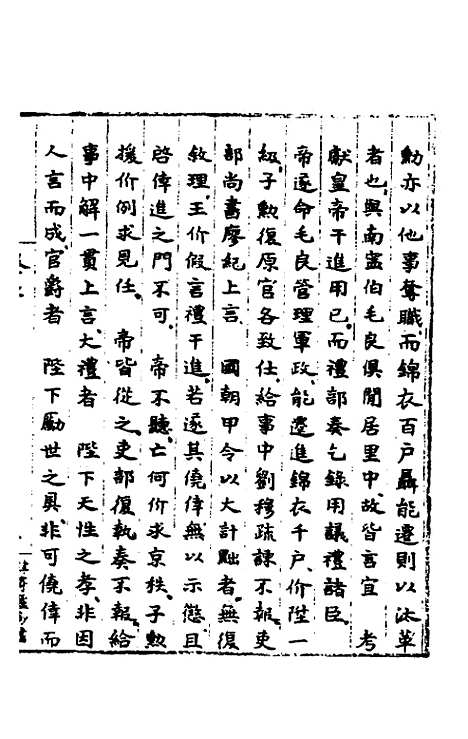 勳亦以他事奪職而錦衣百戶聶能遷則以汰革
者也與南寧伯毛良俱閒居里中故皆言宜 考
獻皇帝干進用已而禮部奏乞錄用議禮諸臣
帝遂命毛良管理軍政能遷進錦衣千戶价陞一
級子勳復原官各致仕給事中劉穆疏諫不報吏
部尚書廖紀上言 國朝甲令以大計黜者無復
敘理王价假言禮干進若遂其僥倖無以示懲且
啓倖進之門不可 帝不聽亡何价求京秩子勳
援价例求見任 帝皆從之吏部復執奏不報給
事中解一貫上言大禮者 陛下天性之孝非因
人言而成官爵者 陛下勵世之具非可僥倖而